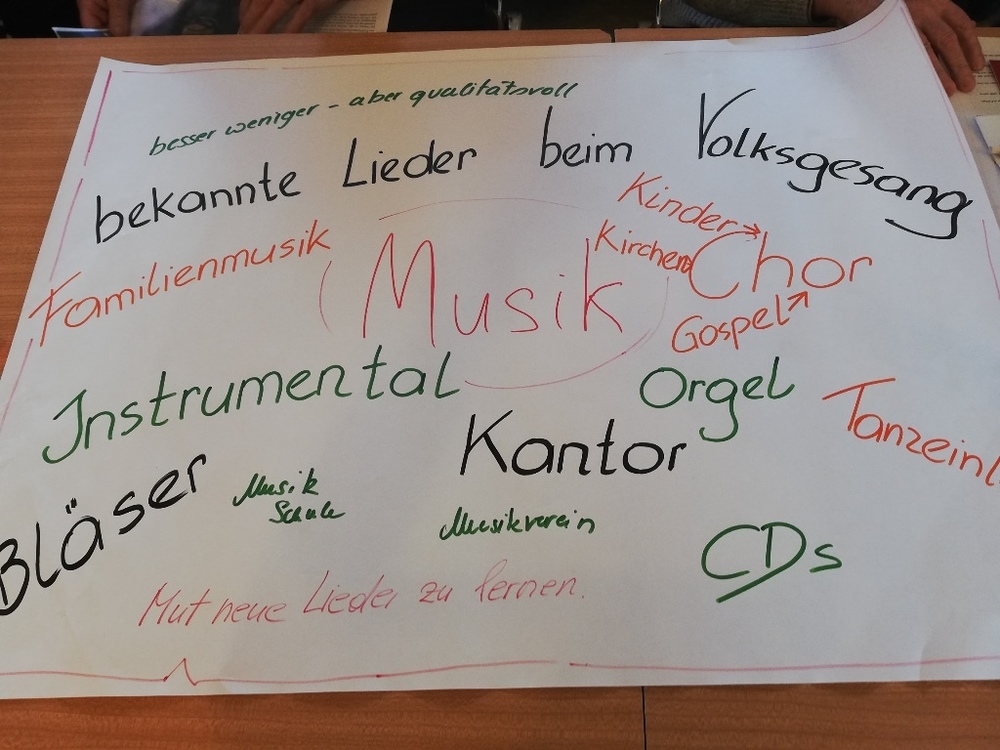 besser weniger - aber qualitätsvoll
bekannte Lieder beim Volksgesang
Familienmusik
Musik
Kinder →
Kirchen
Chor
Gospel ↗
Instrumental
Orgel
Tanzeinl
Kantor
Bläser
Musik
Schule
Musikverein
CDs
Mut neue Lieder zu lernen.